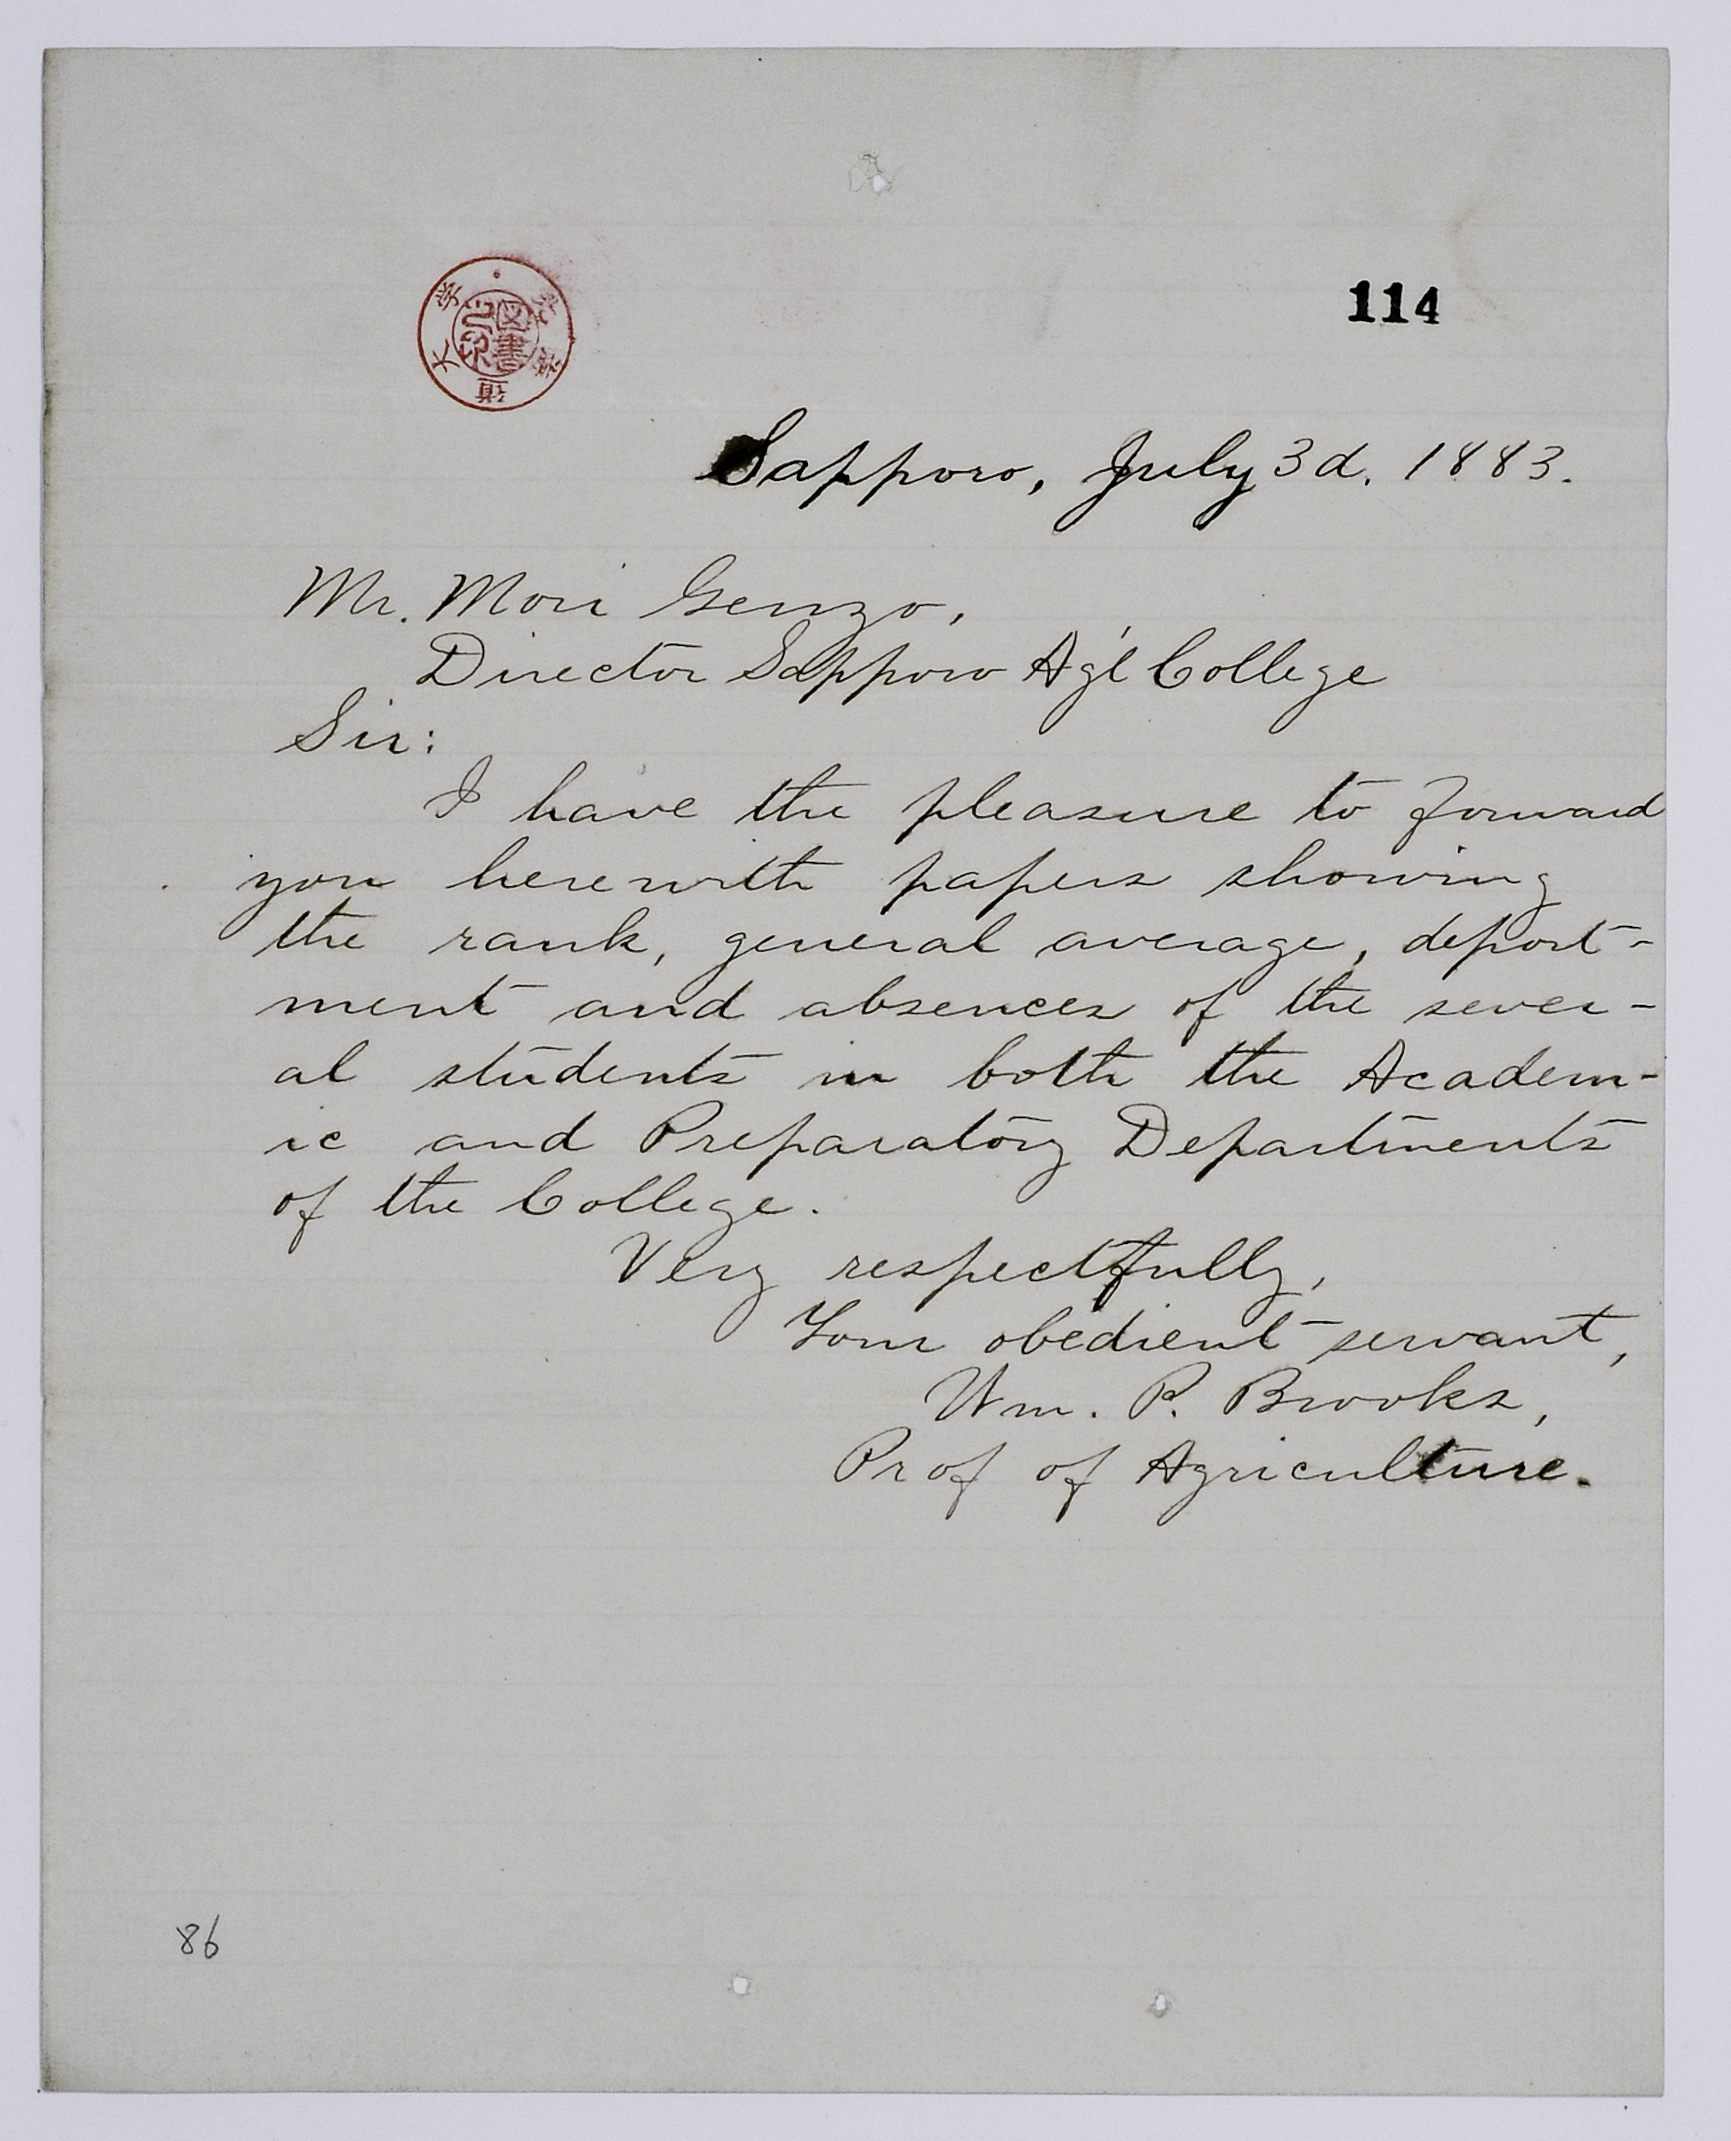 114
Sapporo, July 3d. 1883.
Mr. Mori Genzo,
Director Sapporo Ag'l College
Sir:
I have the pleasure to forward
you herewith papers showing
the rank, general average, deport-
ment and absences of the sever-
al students in both the Academ-
ic and Preparatory Departments
of the College.
Very respectfully,
Your obedient servant,
Wm. P. Brooks,
Prof of Agriculture.
86